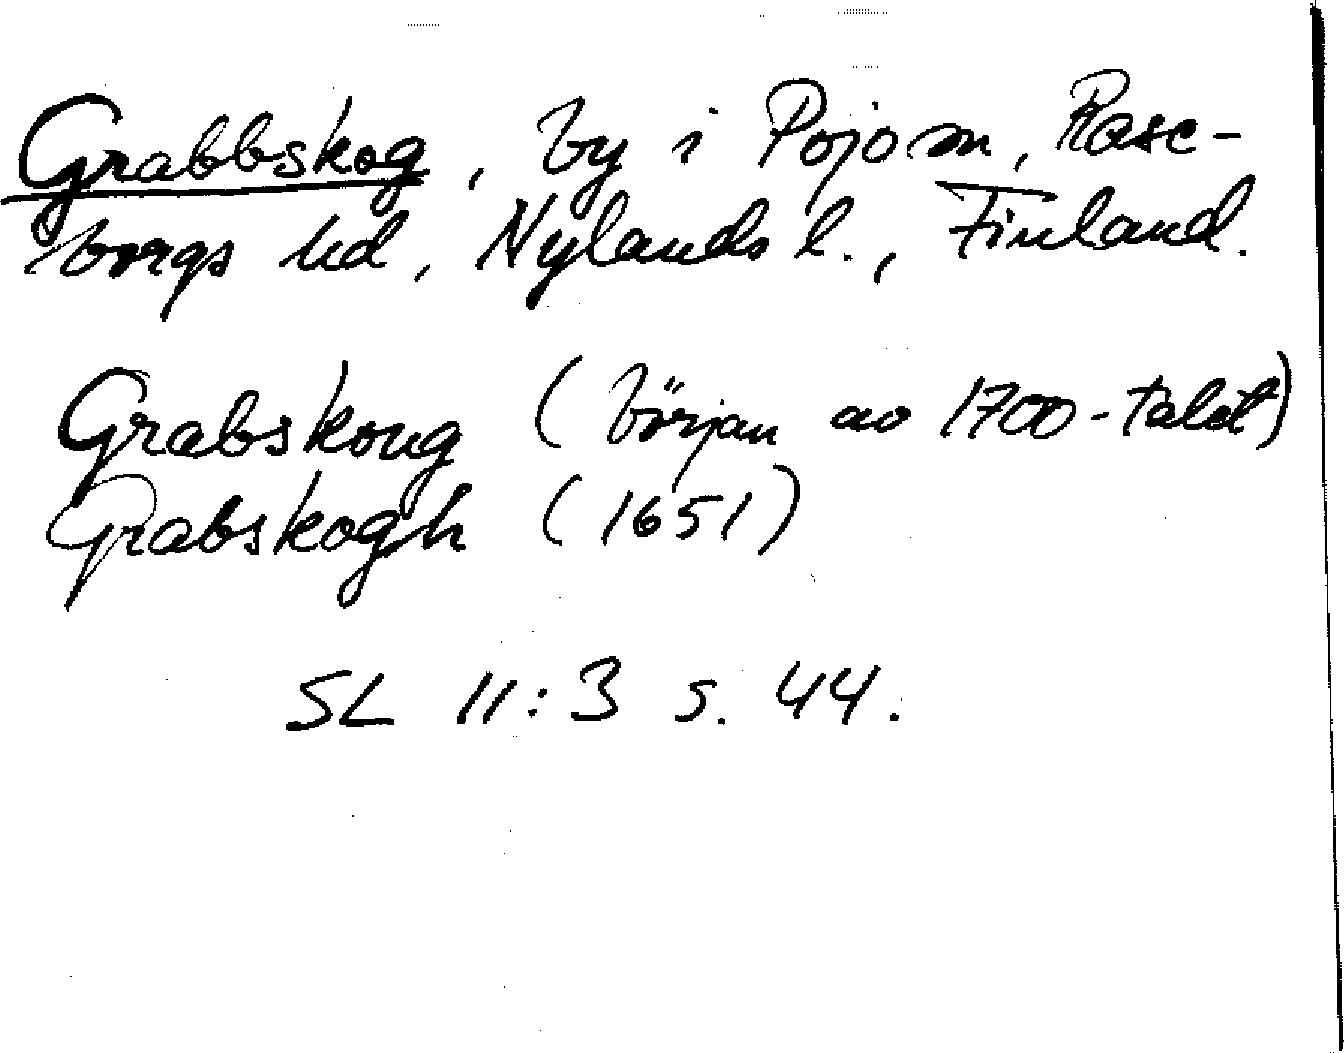 Grabbskog, by i Pojo sn, Rase-
borgs hd, Nylands l., Finland.
Grabskoug (början av 1700-talet)
Grabskogh (1651)
SL 11:3 s. 44.